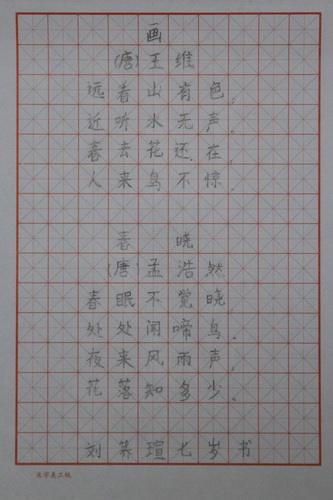 画
(唐)王维
远看山有色,
近听水无声。
春去花还在,
人来鸟不惊。
春晓
(唐)孟浩然
春眠不觉晓,
处处闻啼鸟。
夜来风雨声,
花落知多少。
刘荞瑄七岁书
米字美工纸